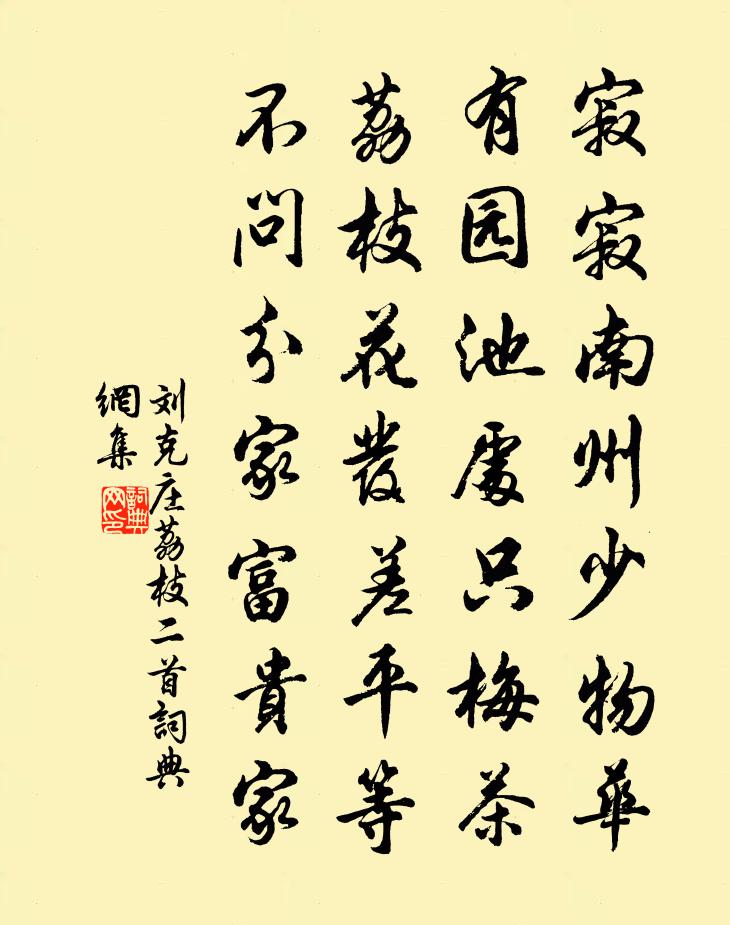 寂寂南州少物華
有园池處只梅茶
荔枝花發差平等
不問分家富貴家
刘克庄荔枝二首詞典
網集
詞典網印